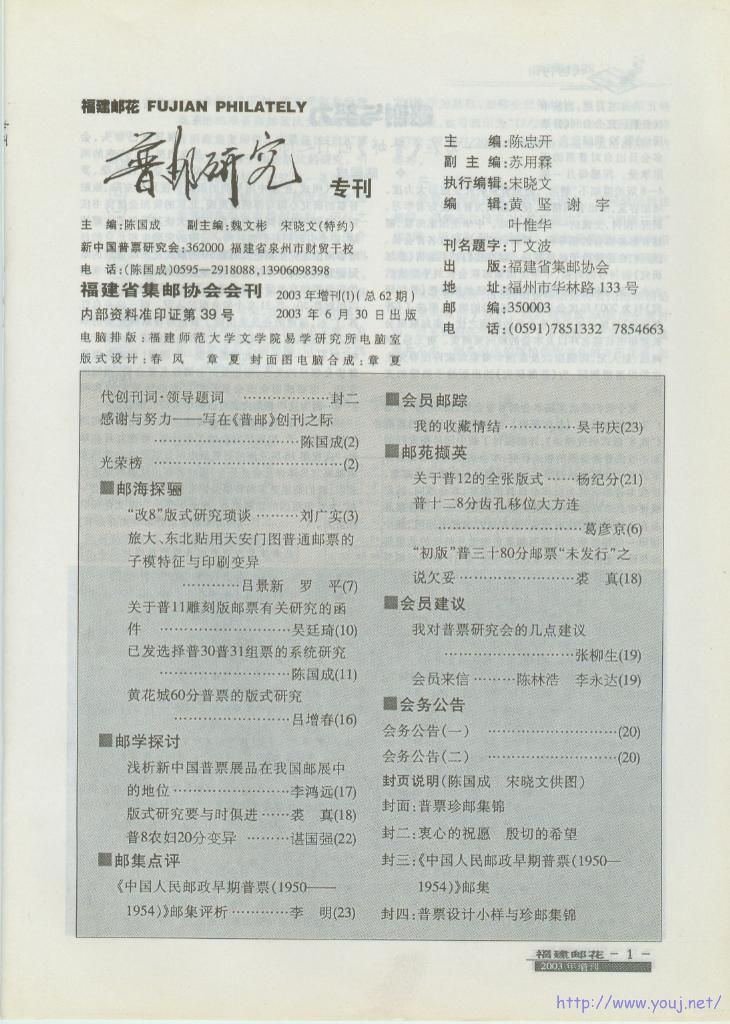 福建邮花 FUJIAN PHILATELY
普邮研究 专刊
主 编:陈国成 副主编:魏文彬 宋晓文(特约)
新中国普票研究会:362000 福建省泉州市财贸干校
电 话:(陈国成)0595—2918088,13906098398
福建省集邮协会会刊 2003年增刊(1)(总62期)
内部资料准印证第39号 2003年6月30日出版
电脑排版:福建师范大学文学院易学研究所电脑室
版式设计:春 风 章 夏 封面图电脑合成:章 夏
主 编:陈忠开
副主编:苏用霖
执行编辑:宋晓文
编 辑:黄 坚 谢 宇
叶惟华
刊名题字:丁文波
出 版:福建省集邮协会
地 址:福州市华林路133号
邮 编:350003
电 话:(0591)7851332 7854663
代创刊词·领导题词 ………………封二
感谢与努力——写在《普邮》创刊之际
………………………陈国成(2)
光荣榜 ………………………………(2)
■邮海探骊
“改8”版式研究琐谈 ………刘广实(3)
旅大、东北贴用天安门图普通邮票的
子模特征与印刷变异
…………吕景新 罗 平(7)
关于普11雕刻版邮票有关研究的函
件 ………………………吴廷琦(10)
已发选择普30普31组票的系统研究
………………………陈国成(11)
黄花城60分普票的版式研究
………………………吕增春(16)
■邮学探讨
浅析新中国普票展品在我国邮展中
的地位 ……………………李鸿远(17)
版式研究要与时俱进 ……裘 真(18)
普8农妇20分变异 ………谌国强(22)
■邮集点评
《中国人民邮政早期普票(1950——
1954)》邮集评析 …………李 明(23)
■会员邮踪
我的收藏情结 ……………吴书庆(23)
■邮苑撷英
关于普12的全张版式 ……杨纪分(21)
普十二8分齿孔移位大方连
…………………………葛彦京(6)
“初版”普三十80分邮票“未发行”之
说欠妥 ……………………裘 真(18)
■会员建议
我对普票研究会的几点建议
…………………………张柳生(19)
会员来信 ………陈林浩 李永达(19)
■会务公告
会务公告(一) ………………………(20)
会务公告(二) ………………………(20)
封页说明(陈国成 宋晓文供图)
封面:普票珍邮集锦
封二:衷心的祝愿 殷切的希望
封三:《中国人民邮政早期普票(1950—
1954)》邮集
封四:普票设计小样与珍邮集锦
福建邮花 - 1 -
2003年增刊
http://www.youj.net/